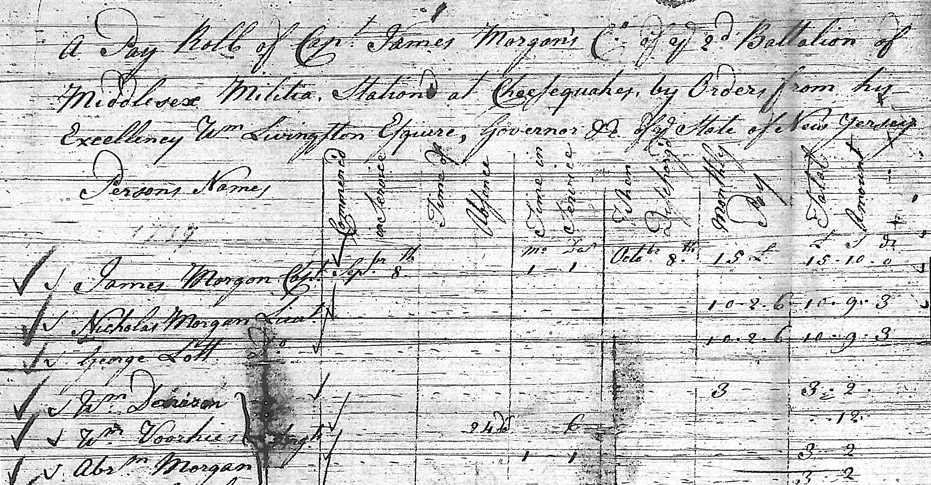 A Pay Roll of Capt. James Morgan's Co. of ye 2d Battalion of
Middlesex Militia, Stationd at Cheesequakes, by Orders from his
Excellency Wm Livingston Esquire, Governor &c of ye State of New Jersey
Persons Names Commencd in Service Time of Absence Time in Service When Discharg'd Monthly Pay Total Amount
mo Das £ S d
James Morgan Capt. Sepr 8th 1 1 Octobr 8th 15 £ 15 10 0
Nicholas Morgan Lieut 10 2 6 10 9 3
George Lott Do 10 2 6 10 9 3
Wm Denison 3 3 2
Wm Voorhies 24d 6 12
Abrm Morgan 1 1 3 2
3 2